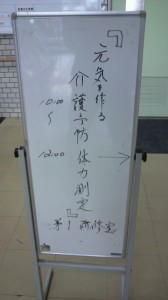 『元気を作る
介護予防体力測定』
10:00
〜
12:00
→
第1研修室